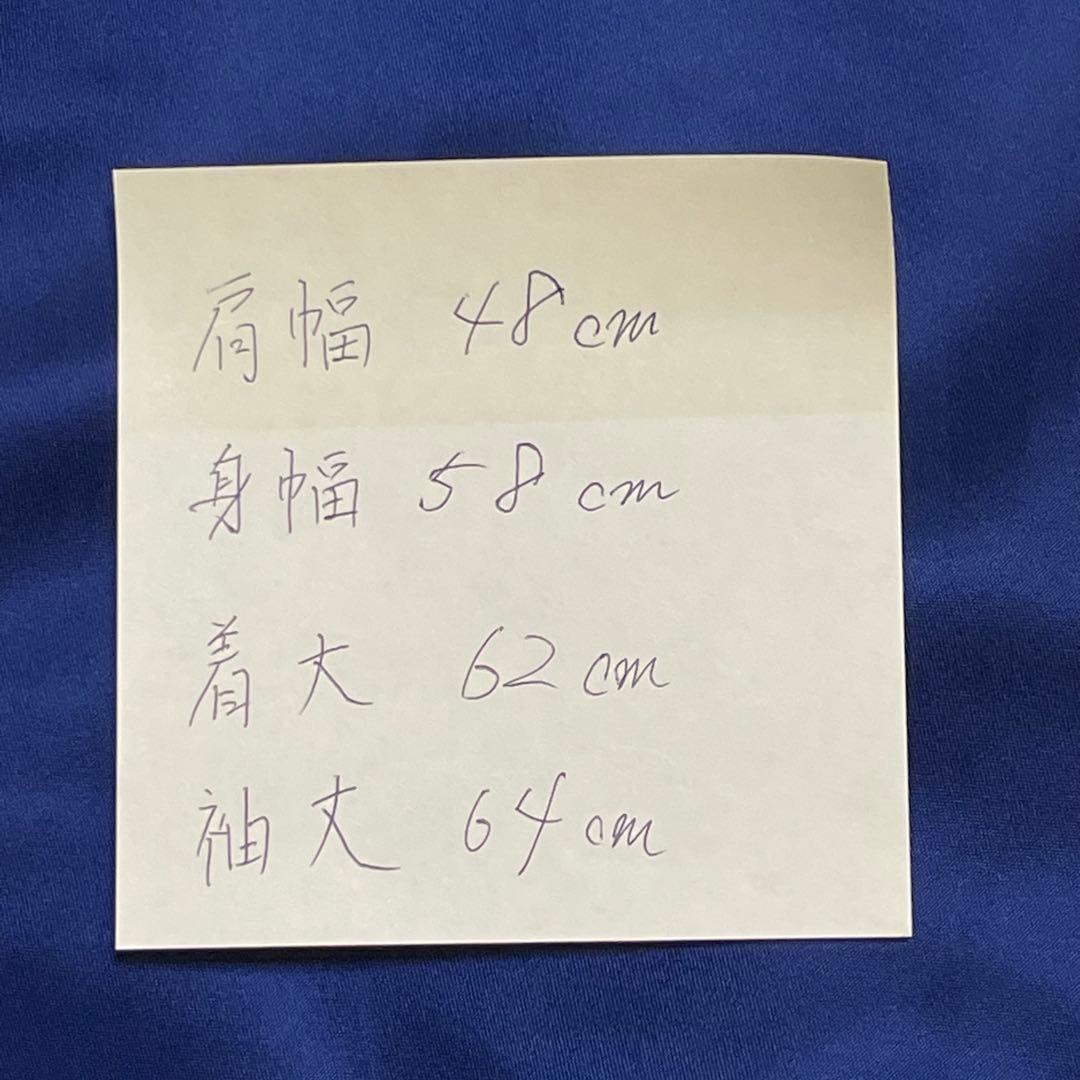 肩幅 48cm
身幅 58cm
着丈 62cm
袖丈 64cm